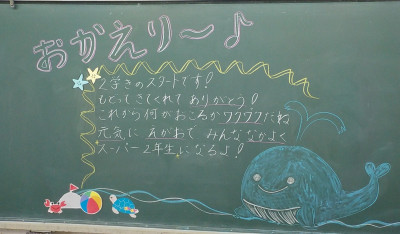 おかえり〜♪
2学きのスタートです!
もどってきてくれて ありがとう!
これから何がおころか ワクワクだね
元気に えがおで みんななかよく
スーパー2年生になるよ!